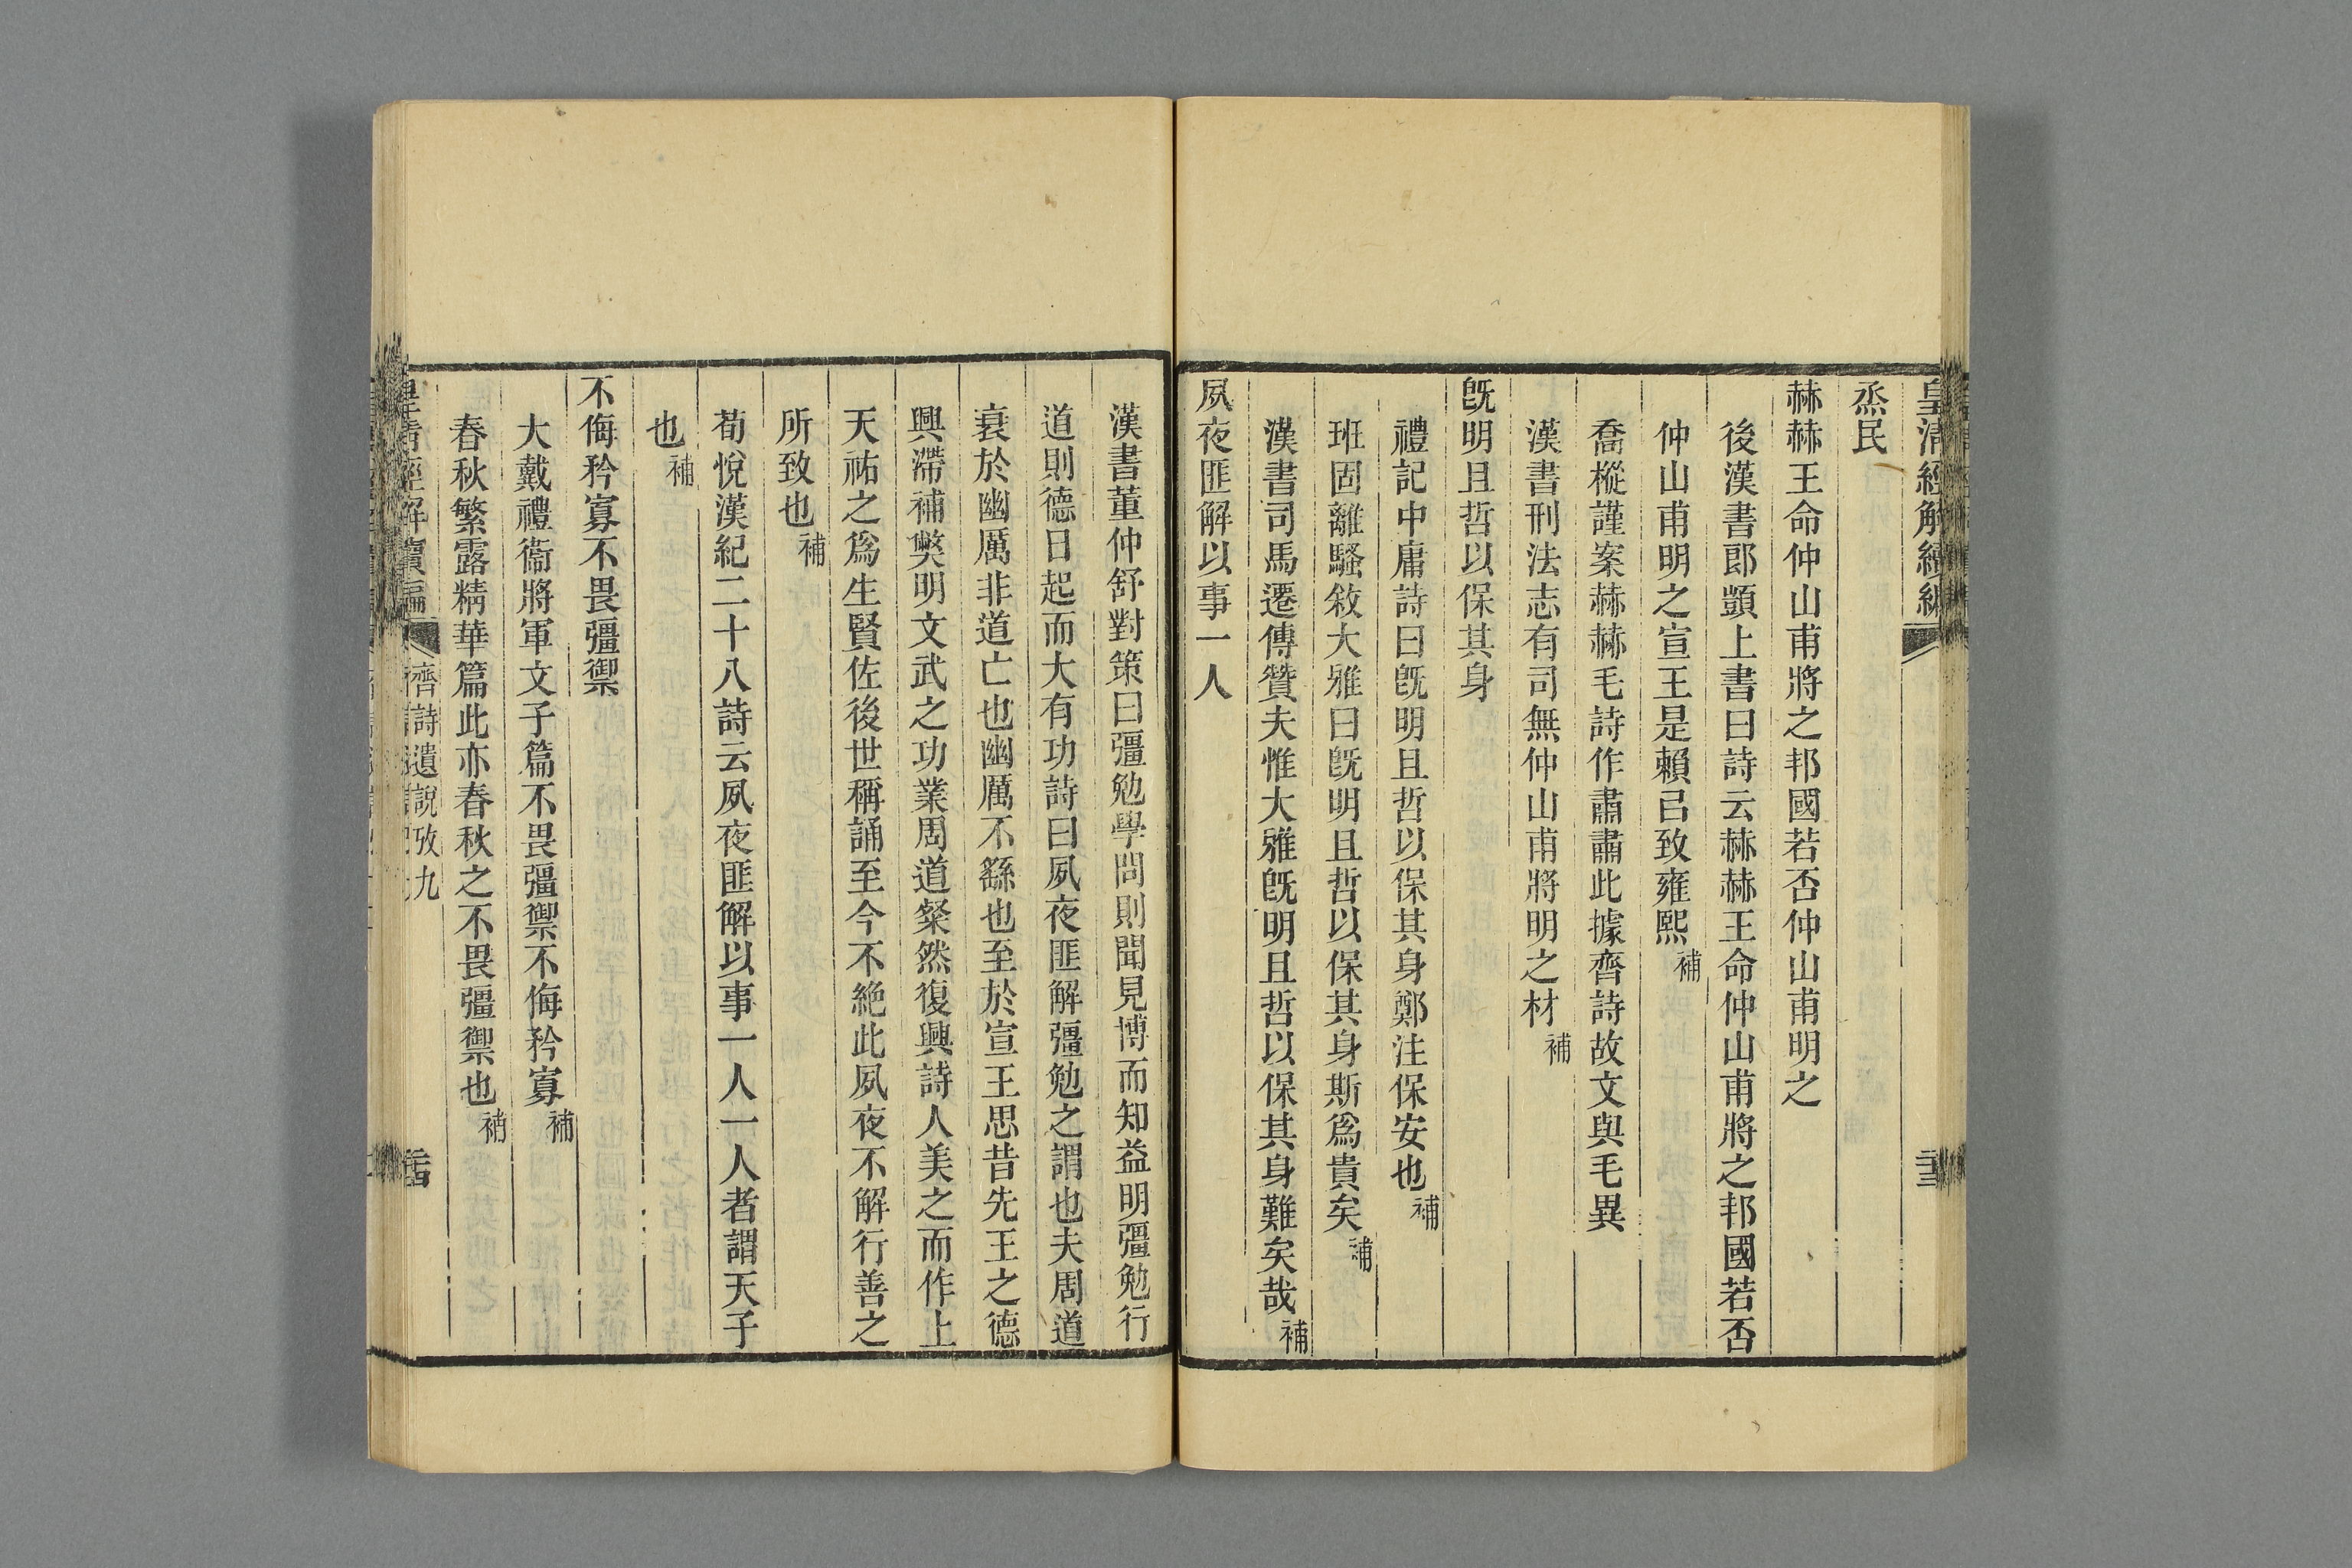 皇清經解續編
烝民
赫赫王命仲山甫將之邦國若否仲山甫明之
後漢書郎顗上書曰詩云赫赫王命仲山甫將之邦國若否
仲山甫明之宣王是賴已致雍熙補
喬樅謹案赫赫毛詩作肅肅此據齊詩故文與毛異
漢書刑法志有司無仲山甫將明之材補
旣明且哲以保其身
禮記中庸詩曰旣明且哲以保其身鄭注保安也補
班固離騷敘大雅曰旣明且哲以保其身斯爲貴矣補
漢書司馬遷傳贊夫惟大雅旣明且哲以保其身難矣哉補
夙夜匪解以事一人
漢書董仲舒對策曰彊勉學問則聞見博而知益明彊勉行
道則德日起而大有功詩曰夙夜匪解彊勉之謂也夫周道
衰於幽厲非道亡也幽厲不繇也至於宣王思昔先王之德
興滯補獘明文武之功業周道粲然復興詩人美之而作上
天祐之爲生賢佐後世稱誦至今不絶此夙夜不解行善之
所致也補
荀悅漢紀二十八詩云夙夜匪解以事一人一人者謂天子
也補
不侮矜寡不畏彊禦
大戴禮衞將軍文子篇不畏彊禦不侮矜寡補
春秋繁露精華篇此亦春秋之不畏彊禦也補
皇清經解續編 齊詩遺說攷九 二十四